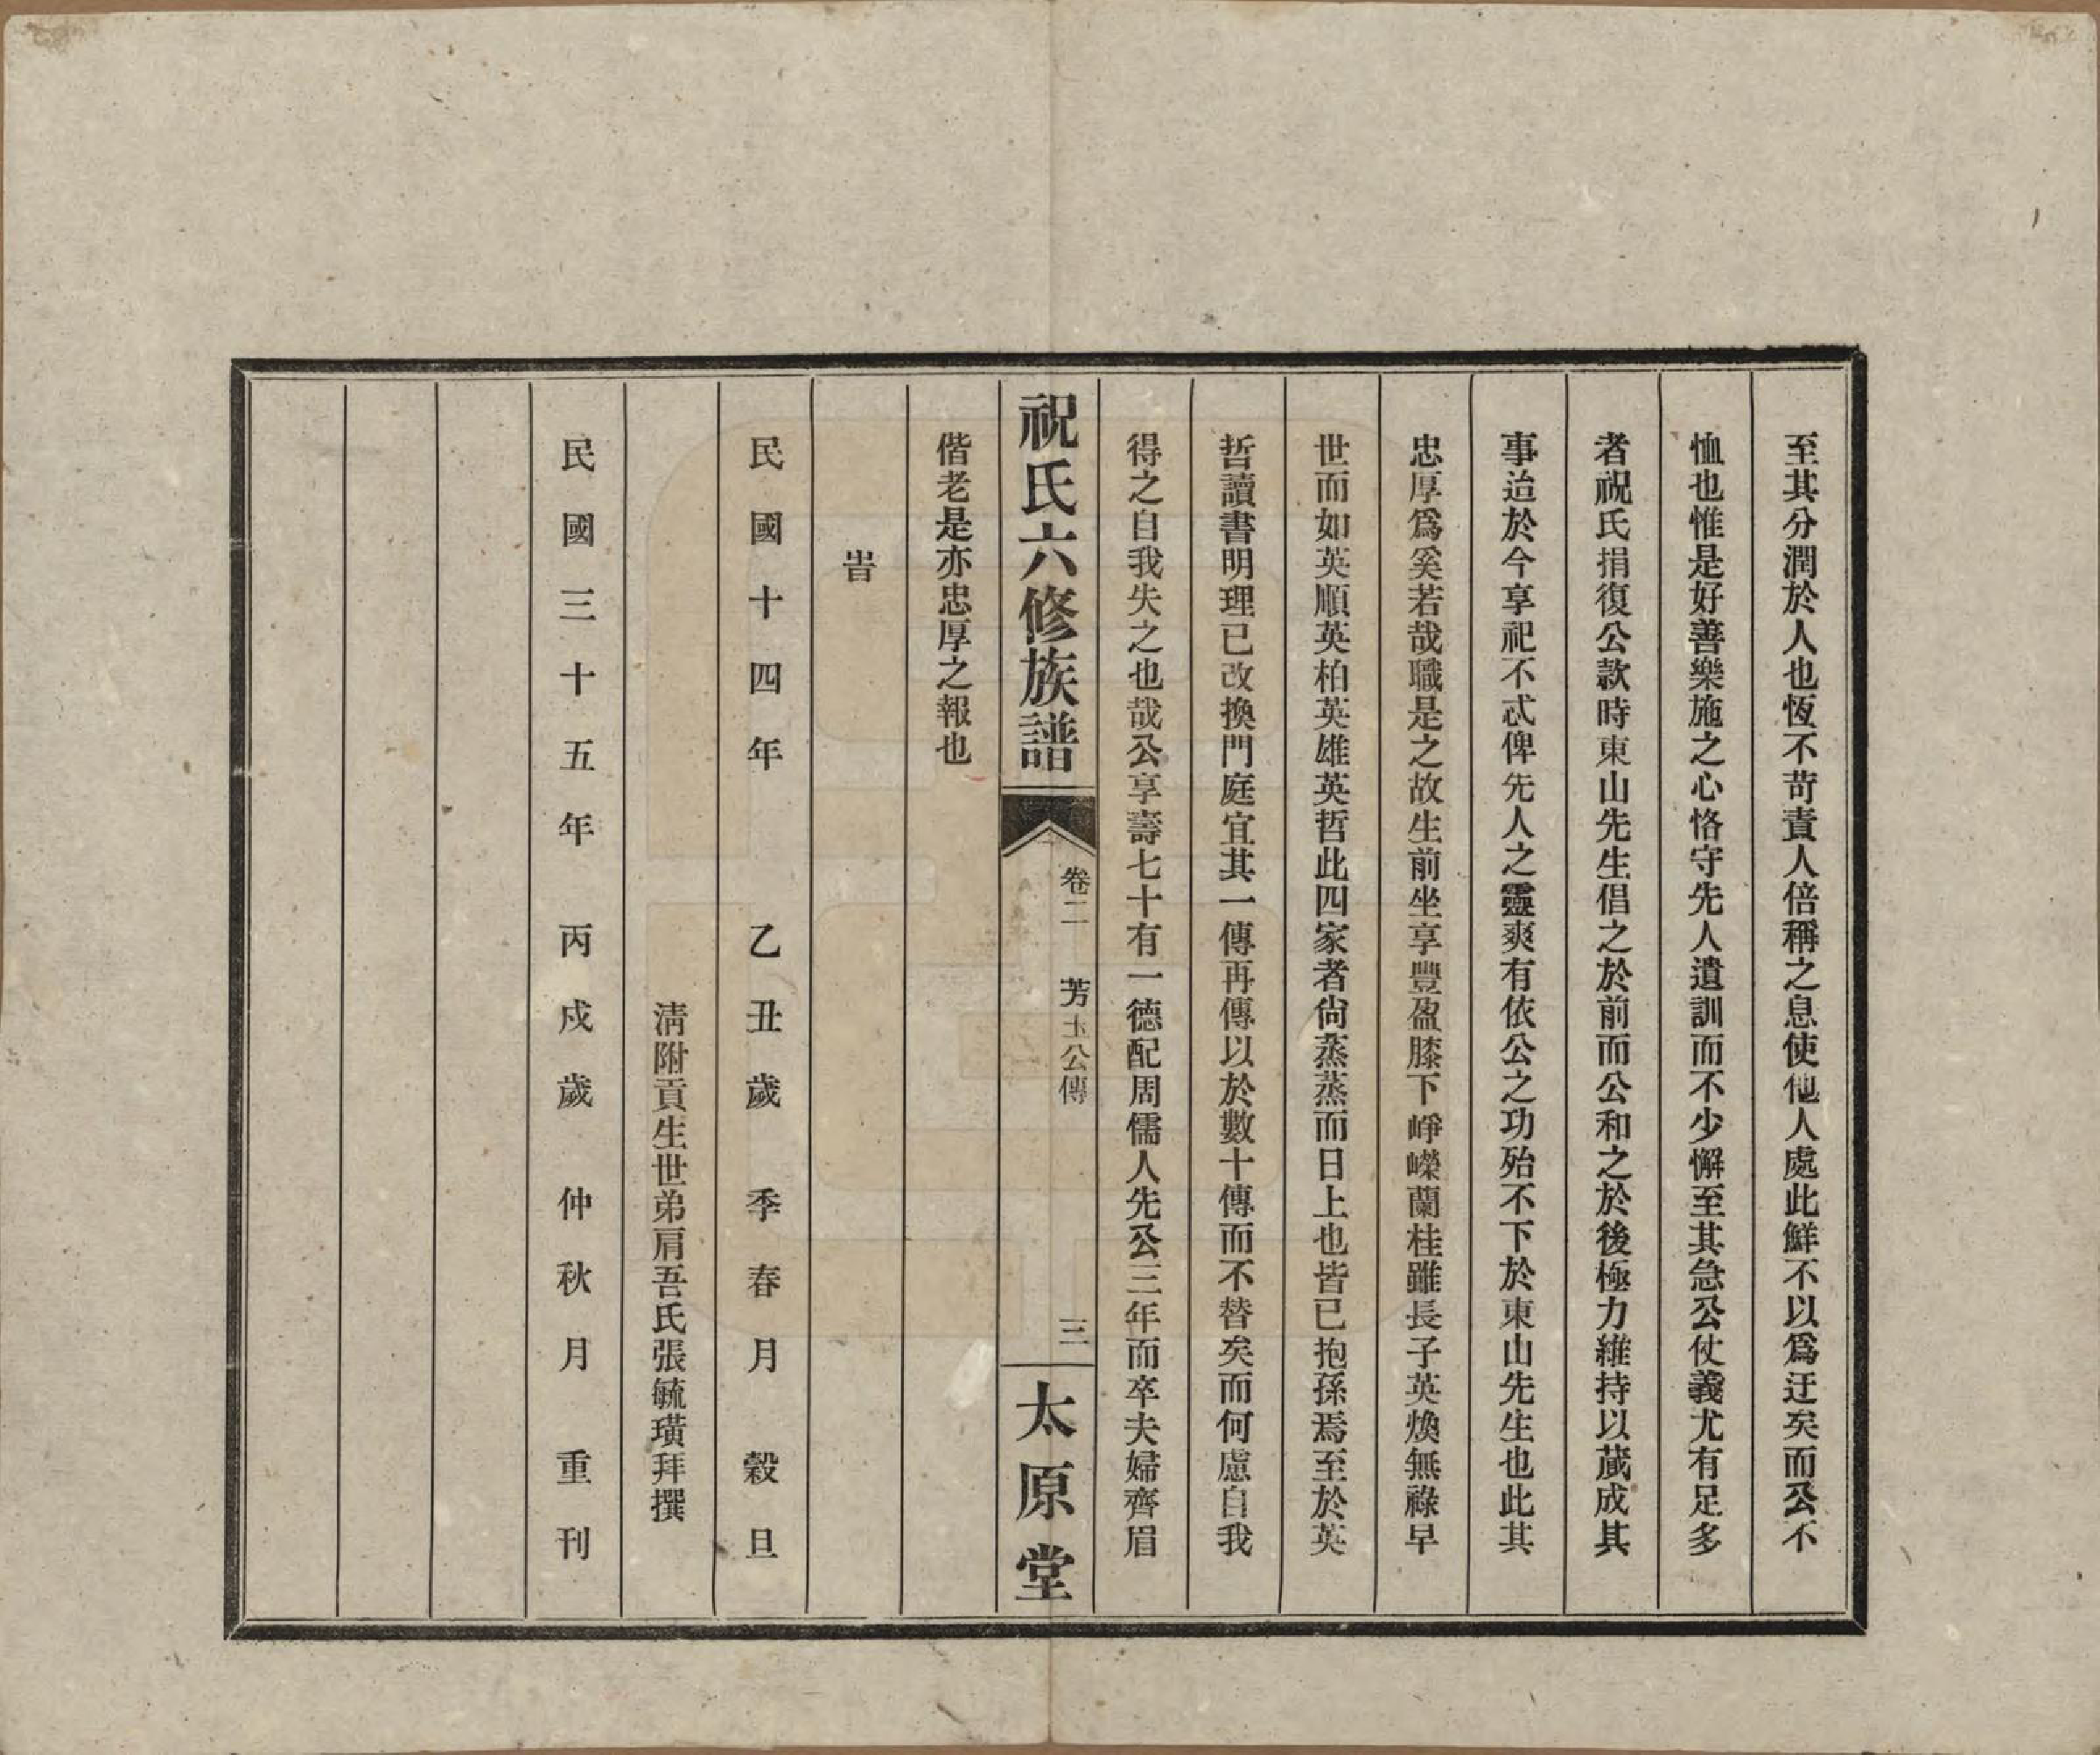 至其分潤於人也恆不苛責人倍稱之息使他人處此鮮不以爲迂矣而公不
恤也惟是好善樂施之心恪守先人遺訓而不少懈至其急公仗義尤有足多
者祝氏捐復公款時東山先生倡之於前而公和之於後極力維持以蕆成其
事迨於今享祀不忒俾先人之靈爽有依公之功殆不下於東山先生也此其
忠厚爲奚若哉職是之故生前坐享豐盈膝下崢嶸蘭桂雖長子英煥無祿早
世而如英順英柏英雄英哲此四家者尙蒸蒸而日上也皆已抱孫焉至於英
哲讀書明理已改換門庭宜其一傳再傳以於數十傳而不替矣而何慮自我
得之自我失之也哉公享壽七十有一德配周儒人先公三年而卒夫婦齊眉
祝氏六修族譜 卷二 芳圡公傳 三 太原堂
偕老是亦忠厚之報也
旹
民國十四年 乙丑歲 季春月 穀旦
淸附貢生世弟肩吾氏張毓璜拜撰
民國三十五年 丙戍歲 仲秋月 重刊